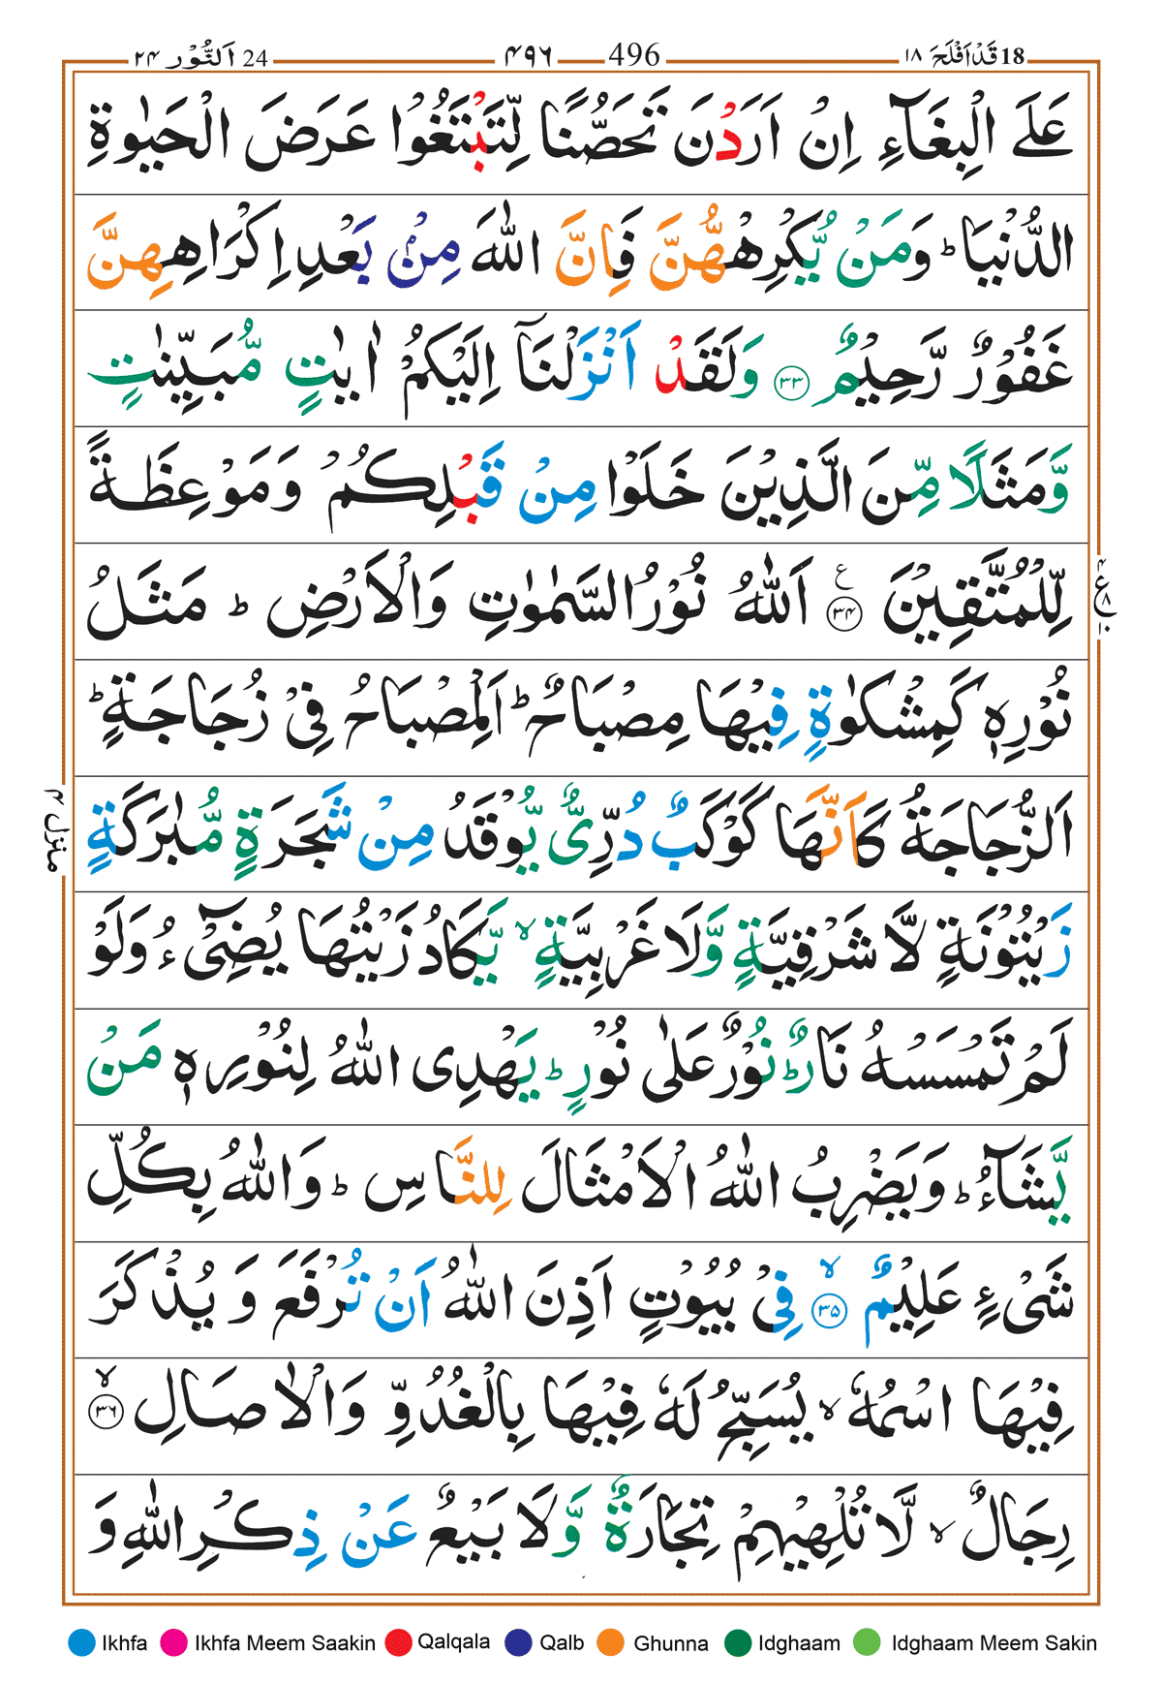 18 قَدْ اَفْلَحَ ١٨ 496 ۴۹۶ 24 اَلنُّوْر ۲۴
عَلَى الْبِغَآءِ اِنْ اَرَدْنَ تَحَصُّنًا لِّتَبْتَغُوْا عَرَضَ الْحَيٰوةِ
الدُّنْيَا ؕ وَمَنْ يُّكْرِهْهُّنَّ فَاِنَّ اللّٰهَ مِنْۢ بَعْدِ اِكْرَاهِهِنَّ
غَفُوْرٌ رَّحِيْمٌ ﴿۳۳﴾ وَلَقَدْ اَنْزَلْنَاۤ اِلَيْكُمْ اٰيٰتٍ مُّبَيِّنٰتٍ
وَّمَثَلًا مِّنَ الَّذِيْنَ خَلَوْا مِنْ قَبْلِكُمْ وَمَوْعِظَةً
لِّلْمُتَّقِيْنَ ﴿۳۴﴾ ع اَللّٰهُ نُوْرُ السَّمٰوٰتِ وَالْاَرْضِ ؕ مَثَلُ
نُوْرِهٖ كَمِشْكٰوةٍ فِيْهَا مِصْبَاحٌ ؕ اَلْمِصْبَاحُ فِيْ زُجَاجَةٍ ؕ
اَلزُّجَاجَةُ كَاَنَّهَا كَوْكَبٌ دُرِّيٌّ يُّوْقَدُ مِنْ شَجَرَةٍ مُّبٰرَكَةٍ
زَيْتُوْنَةٍ لَّا شَرْقِيَّةٍ وَّلَا غَرْبِيَّةٍ ۙ يَّكَادُ زَيْتُهَا يُضِيْٓءُ وَلَوْ
لَمْ تَمْسَسْهُ نَارٌ ؕ نُوْرٌ عَلٰى نُوْرٍ ؕ يَهْدِى اللّٰهُ لِنُوْرِهٖ مَنْ
يَّشَآءُ ؕ وَيَضْرِبُ اللّٰهُ الْاَمْثَالَ لِلنَّاسِ ؕ وَاللّٰهُ بِكُلِّ
شَيْءٍ عَلِيْمٌ ﴿۳۵﴾ ۙ فِيْ بُيُوْتٍ اَذِنَ اللّٰهُ اَنْ تُرْفَعَ وَ يُذْكَرَ
فِيْهَا اسْمُهٗ ۙ يُسَبِّحُ لَهٗ فِيْهَا بِالْغُدُوِّ وَالْاٰصَالِ ﴿۳۶﴾ ۙ
رِجَالٌ ۙ لَّا تُلْهِيْهِمْ تِجَارَةٌ وَّلَا بَيْعٌ عَنْ ذِكْرِ اللّٰهِ وَ
منزل ۴
Ikhfa Ikhfa Meem Saakin Qalqala Qalb Ghunna Idghaam Idghaam Meem Sakin